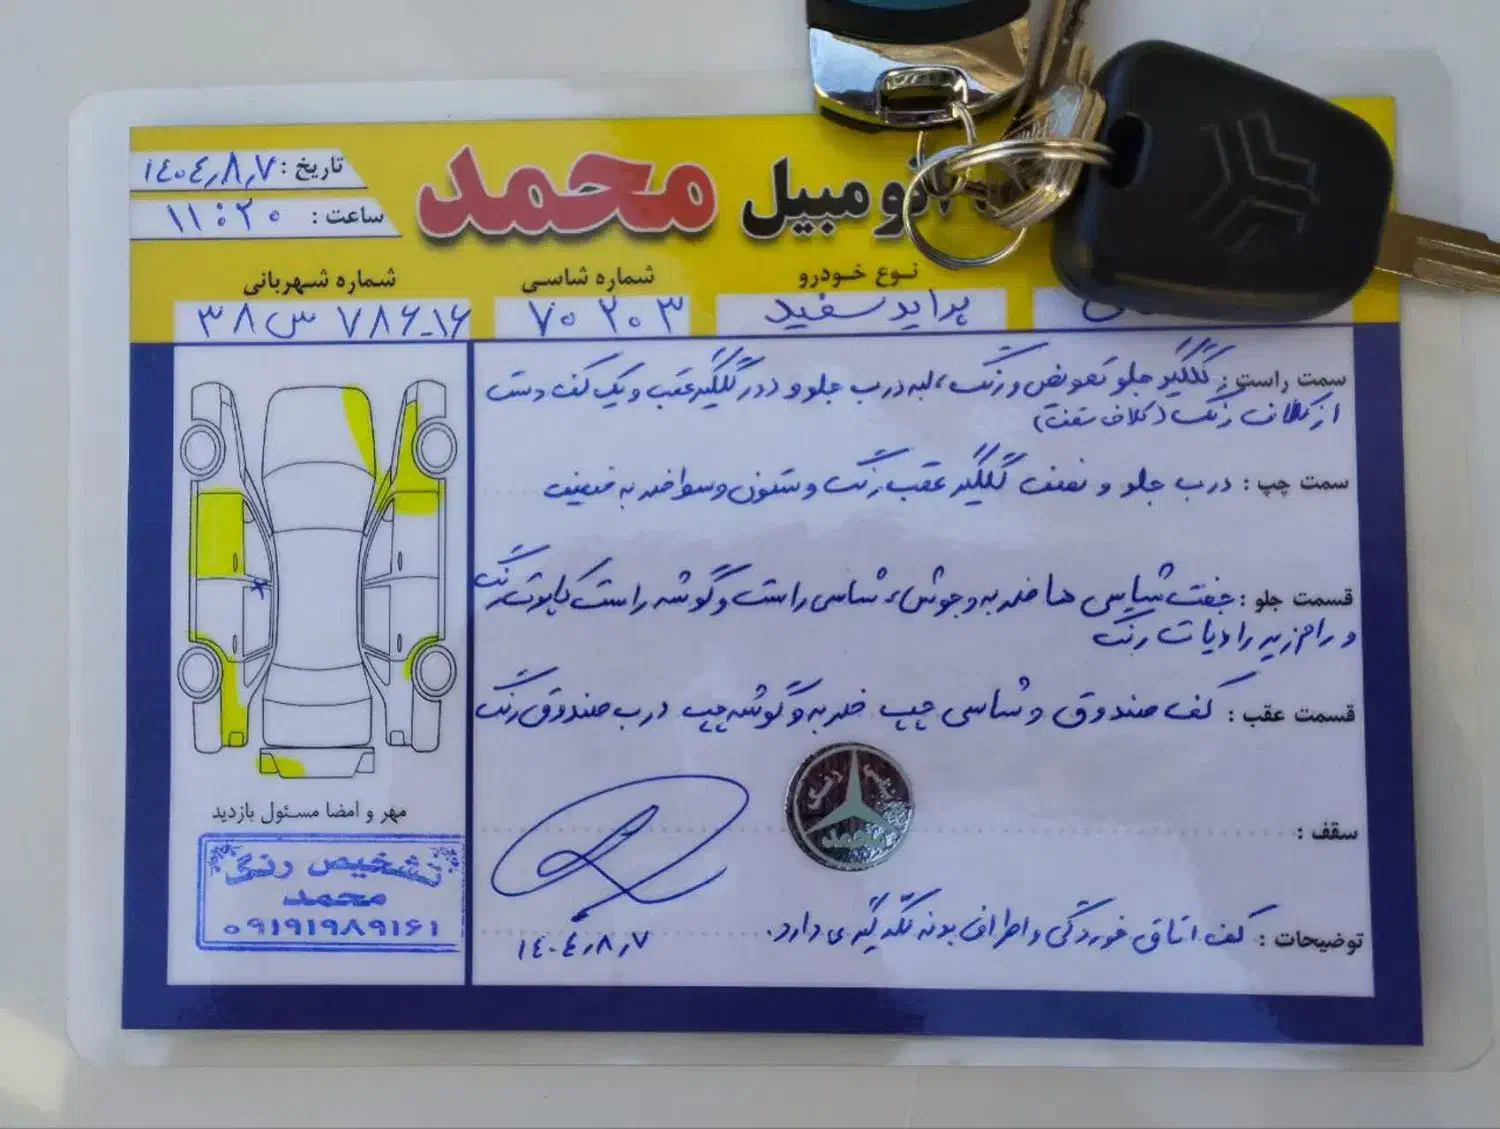 اتومبیل محمد
تاریخ : ۱۴۰۴٫۸٫۷
ساعت : ۱۱:۲۰
نوع خودرو
پراید سفید
شماره شاسی
۷۰۲۰۳
شماره شهربانی
۳۸ س ۷۸۶-۱۶
سمت راست : گلگیر جلو تعویض و رنگ، لبه درب جلو و دور گلگیر عقب و یک کف دست
از کلاف رنگ (کلاف سقف)
سمت چپ : درب جلو و نصف گلگیر عقب رنگ و ستون وسط ضربه خفیف
قسمت جلو : جفت شاسی ها ضربه و جوش، شاسی راست و گوشه راست کاپوت رنگ
و رام زیر رادیات رنگ
قسمت عقب : کف صندوق و شاسی چپ ضربه و گوشه چپ درب صندوق رنگ
سقف :
توضیحات : کف اتاق خوردگی و اطراف بدنه لکه گیری دارد.
۱۴۰۴٫۸٫۷
مهر و امضا مسئول بازدید
تشخیص رنگ
محمد
۰۹۱۹۱۹۸۹۱۶۱
محمد